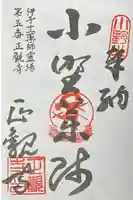 奉納
小野薬師
伊予十二薬師霊場
第五番正観寺
正観寺